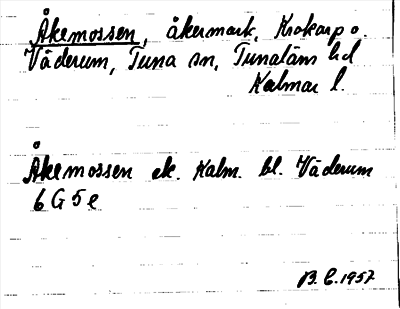 Åkemossen, åkermark, Krokarp o.
Väderum, Tuna sn, Tunaläns hd
Kalmar l.
Åkemossen ek. Kalm. bl. Väderum
6 G 5 e
B. C. 1957